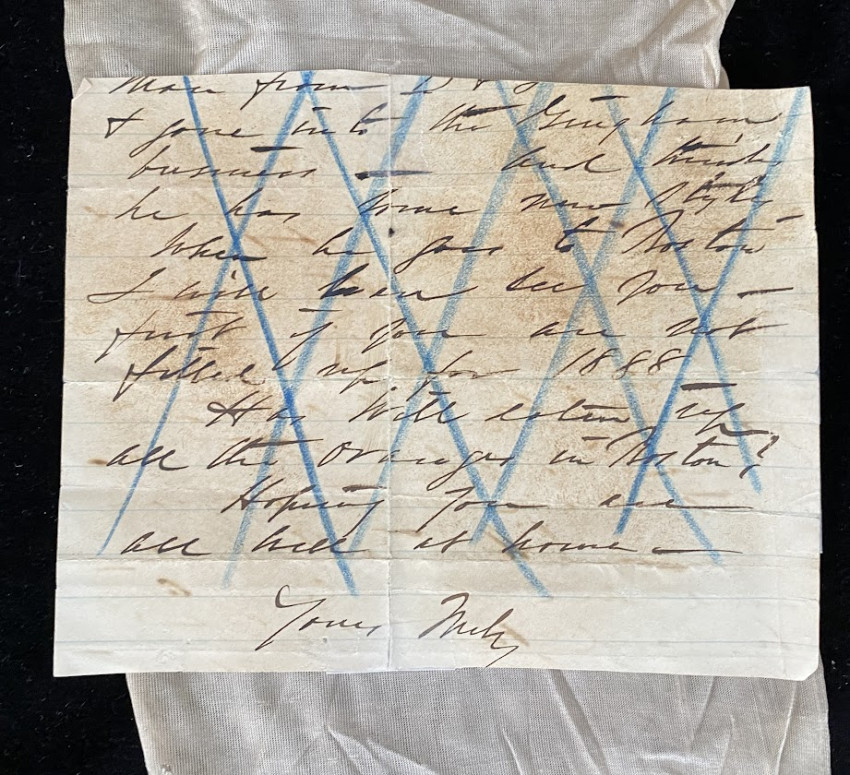 man from
& gone into the Gingham
business — and thinks
he has some new styles
When he goes to Boston
I will have see you —
that if you are not
filled up for 1888
Has Will eaten up
all the oranges in Boston?
Hoping you are
all well at home —
Yours